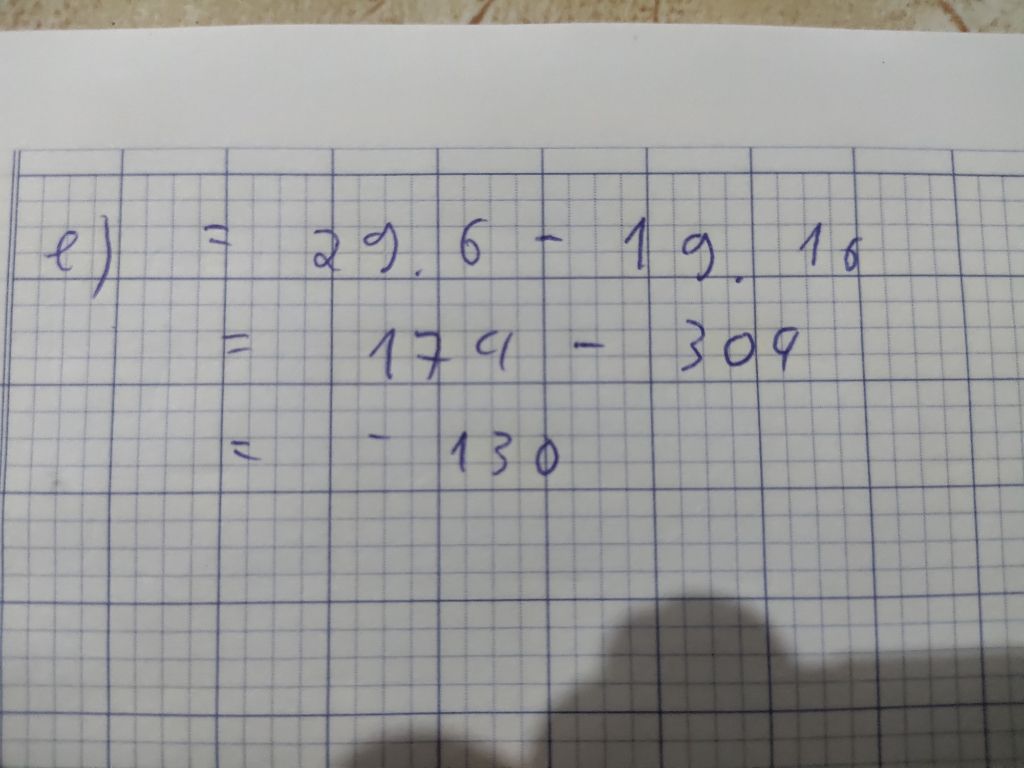 e) = 29.6 - 19.16
= 174 - 304
= - 130